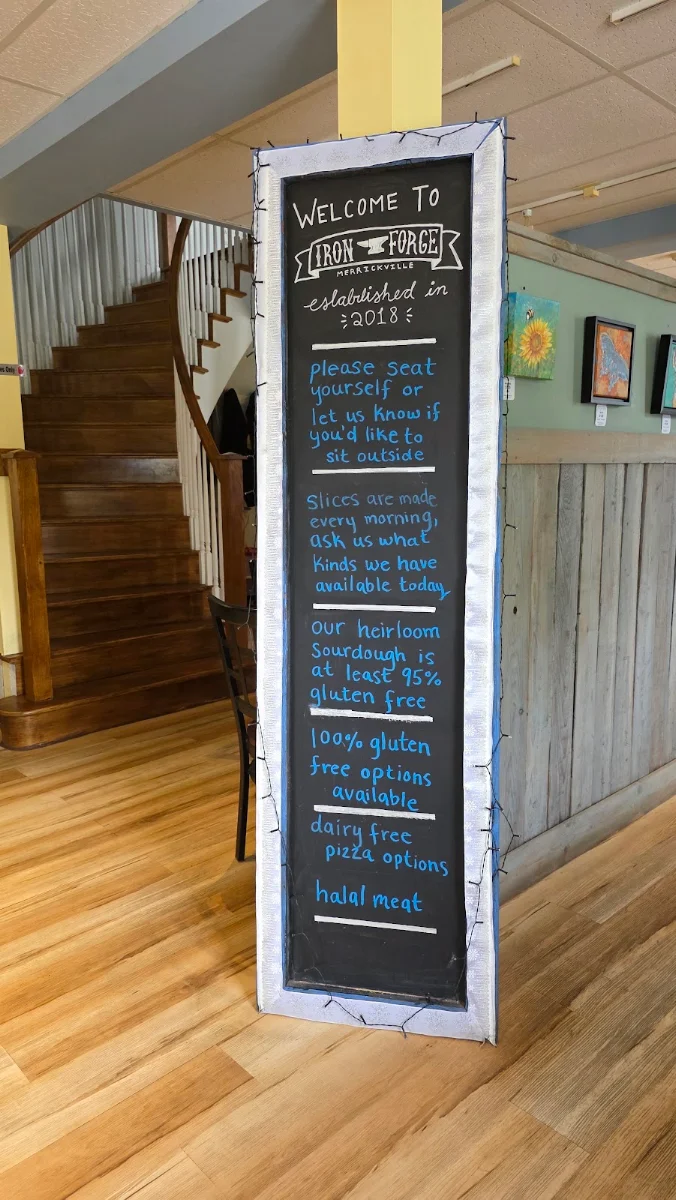 WELCOME TO
IRON FORGE
MERRICKVILLE
established in
2018
please seat
yourself or
let us know if
you'd like to
sit outside
slices are made
every morning,
ask us what
kinds we have
available today
our heirloom
sourdough is
at least 95%
gluten free
100% gluten
free options
available
dairy free
pizza options
halal meat